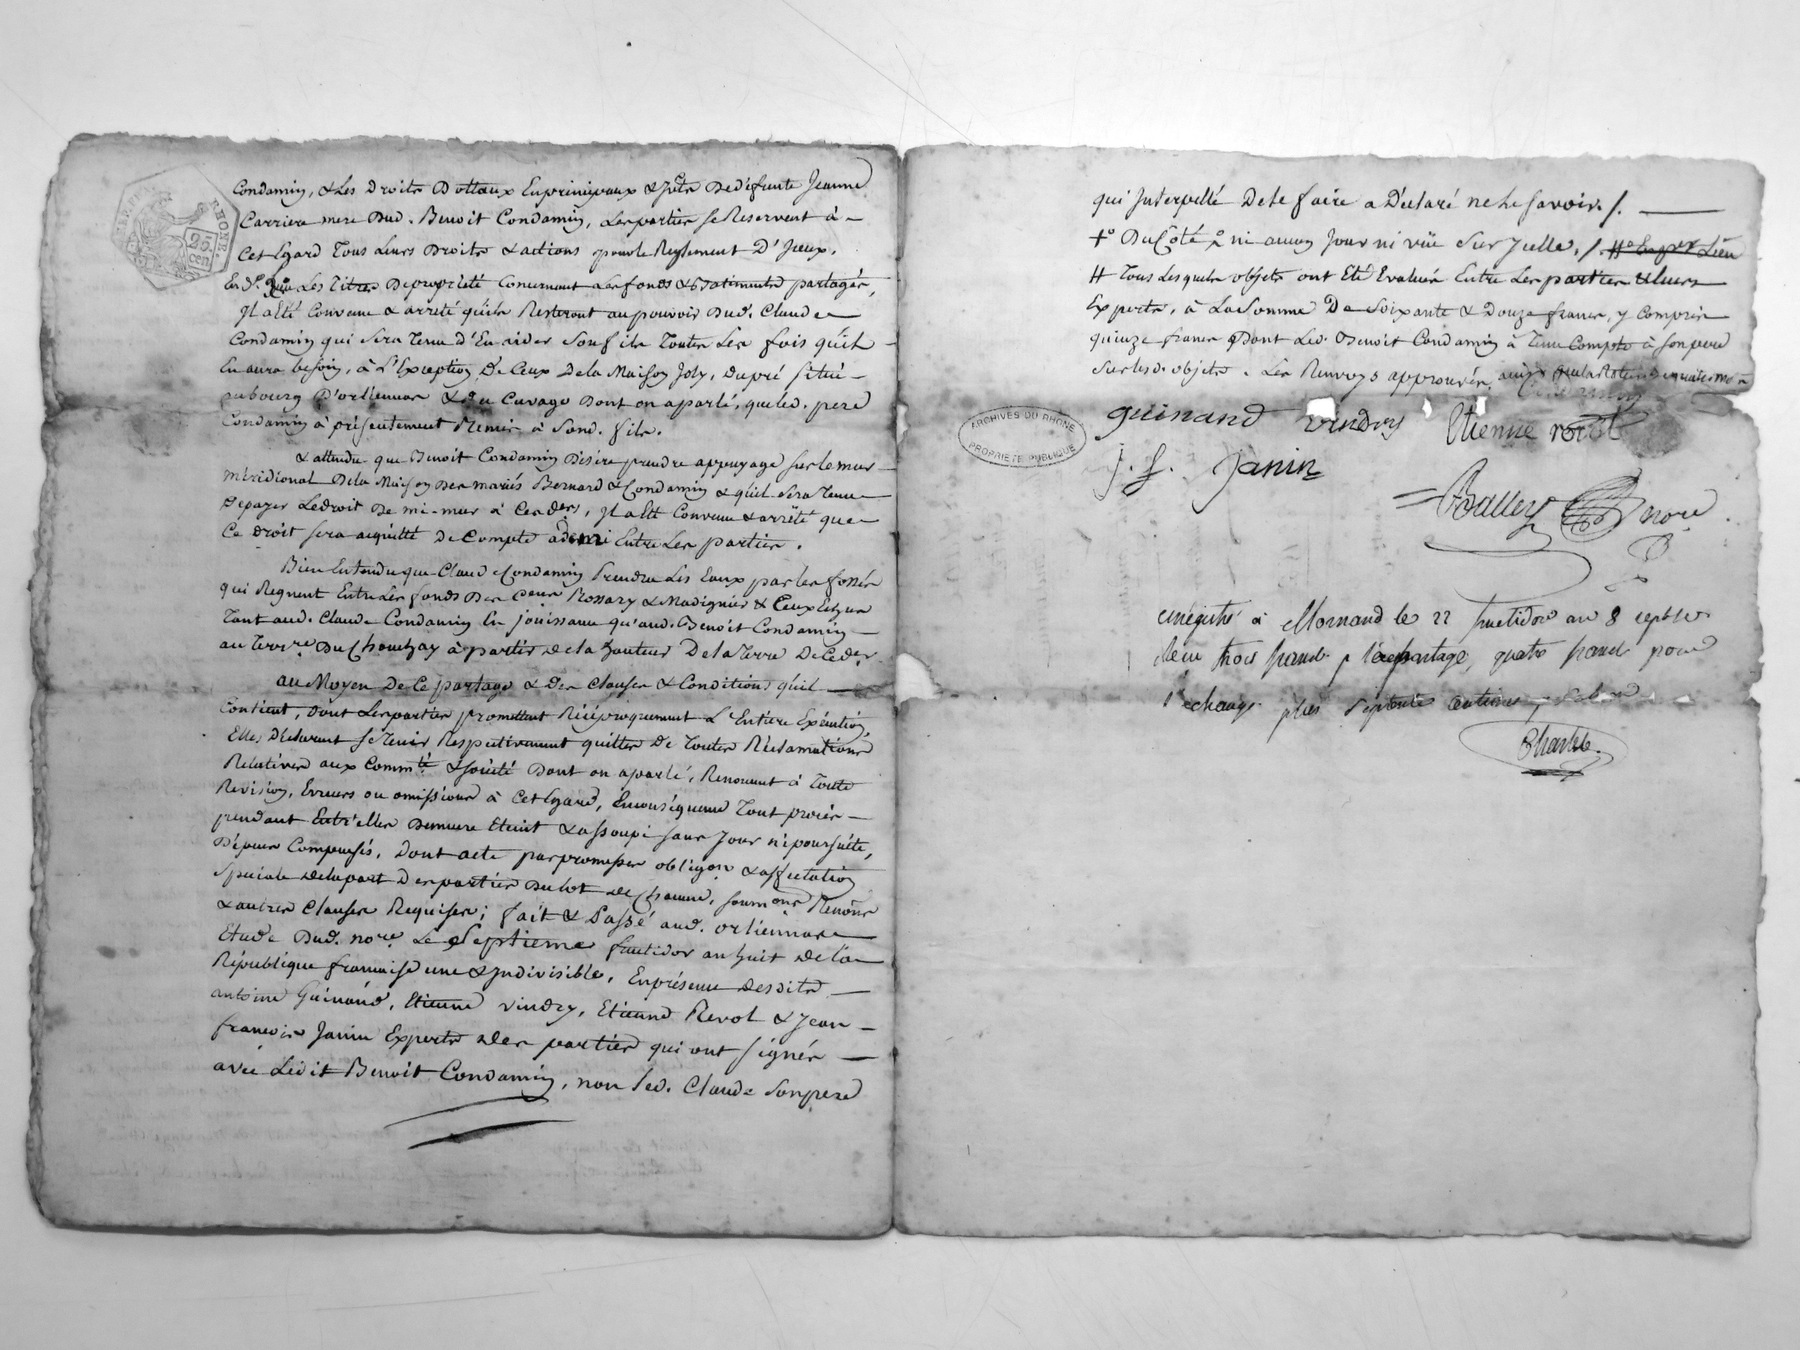 RHONE.
25 CEN
Condamin, & Les Droits Dottaux En principaux & Jcts De défunte Jeanne
Carriere mere Dud. Benoit Condamin, Les parties se Reservent à
Cet Egard Tous Leurs Droits & actions pour le Reglement D'Iceux.
Les Titres De propriété Concernant Les fonds & Batiments partagés,
Il a Eté Convenu & arreté qu'ils Resteront au pouvoir Dud. Claude
Condamin qui sera Tenu d'En aider Son fils Toutes Les fois qu'il
En aura besoin, à L'Exception De Ceux De la Maison Joly, Du pré situé
au bourg D'orliennas & du Cuvage Dont on a parlé, que led. pere
Condamin à présentement Remis à Sond. fils.
& attendu que Benoit Condamin Désire prendre appuyage sur le mur
méridional De la Maison Des mariés Bernard & Condamin & qu'il Sera Tenu
De payer Le droit De mi-mur à Ces ders, Il a Eté Convenu & arrêté que
Ce droit sera acquitté De Compte a demi Entre Les parties.
Bien Entendu que Claude Condamin Prendra Les Eaux par les fossés
qui Regnent Entre Les fonds Des Ceurs Rossary & Madignier & Ceux Echus
Tant aud. Claude Condamin En jouissance qu'aud. Benoit Condamin
au Terrre Du Chouchay à partir de la hauteur De la Terre De Ce der.
au Moyen De Ce partage & Des Clauses & Conditions qu'il
Contient, Dont Les parties promettent Réciproquement L'Entiere Exécution,
Elles Déclarent se Tenir Respectivement quittes De Toutes Réclamations
Relatives aux Commté & société Dont on a parlé, Renoncent à Toute
Revision, Erreurs ou omissions à Cet Egard, En conséquence Tout procès
pendant Entr'elles Demeure Eteint & assoupi sans Jour ni poursuite,
Dépens Compensés. Dont acte par promesses obligon & affectation
Spéciale de la part Des parties Du lot De Chacune, soumons Renons
& autres Clauses Requises; fait & Passé aud. orliennas
Etude Dud. nore Le Septieme fructidor an huit de la
République francaise une & Indivisible, En présence desdits
antoine Guinand, Etienne vindry, Etienne Revol & Jean
francois Janin Experts des parties qui ont signés
avec Ledit Benoit Condamin, non led. Claude Son pere
qui Interpellé De le faire a Déclaré ne le savoir./.
+° Du Côté ni aucun Jour ni vüe Sur Icelle./.
# Tous Lesquels objets ont Eté Evalués Entre Les parties & leurs
Experts, à La Somme De Soixante & Douze francs, y Compris
quinze francs Dont Led. Benoit Condamin à Tenu Compte à Son pere
Sur lesd. objets. Les Renvoys approuvés,
ARCHIVES DU RHÔNE
PROPRIÉTÉ PUBLIQUE
guinand vindry Etienne revol
J. f. Janin
Balley nore
enregistré à Mornand le 22 fructidor an 8
Reçu trois francs p. le partage, quatre francs pour
l'echange plus septante centimes p. subon
Charle.